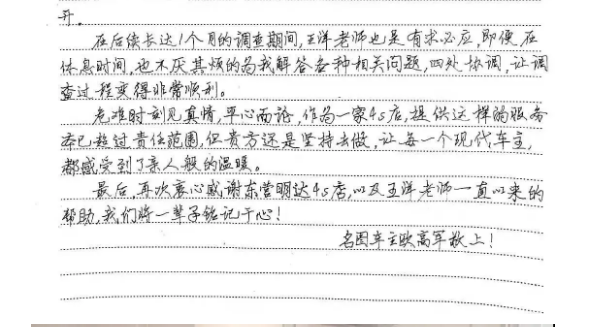 开。
在后续长达1个月的调查期间,王洋老师也是有求必应,即便在
休息时间,也不厌其烦的为我解答各种相关问题,四处协调,让调
查过程变得非常顺利。
危难时刻见真情,平心而论,作为一家4s店,提供这样的服务
本已超过责任范围,但贵方还是坚持去做,让每一个现代车主,
都感受到了亲人般的温暖。
最后,再次衷心感谢东营明达4s店,以及王洋老师一直以来的
帮助,我们将一辈子铭记于心!
名图车主欧高军敬上!